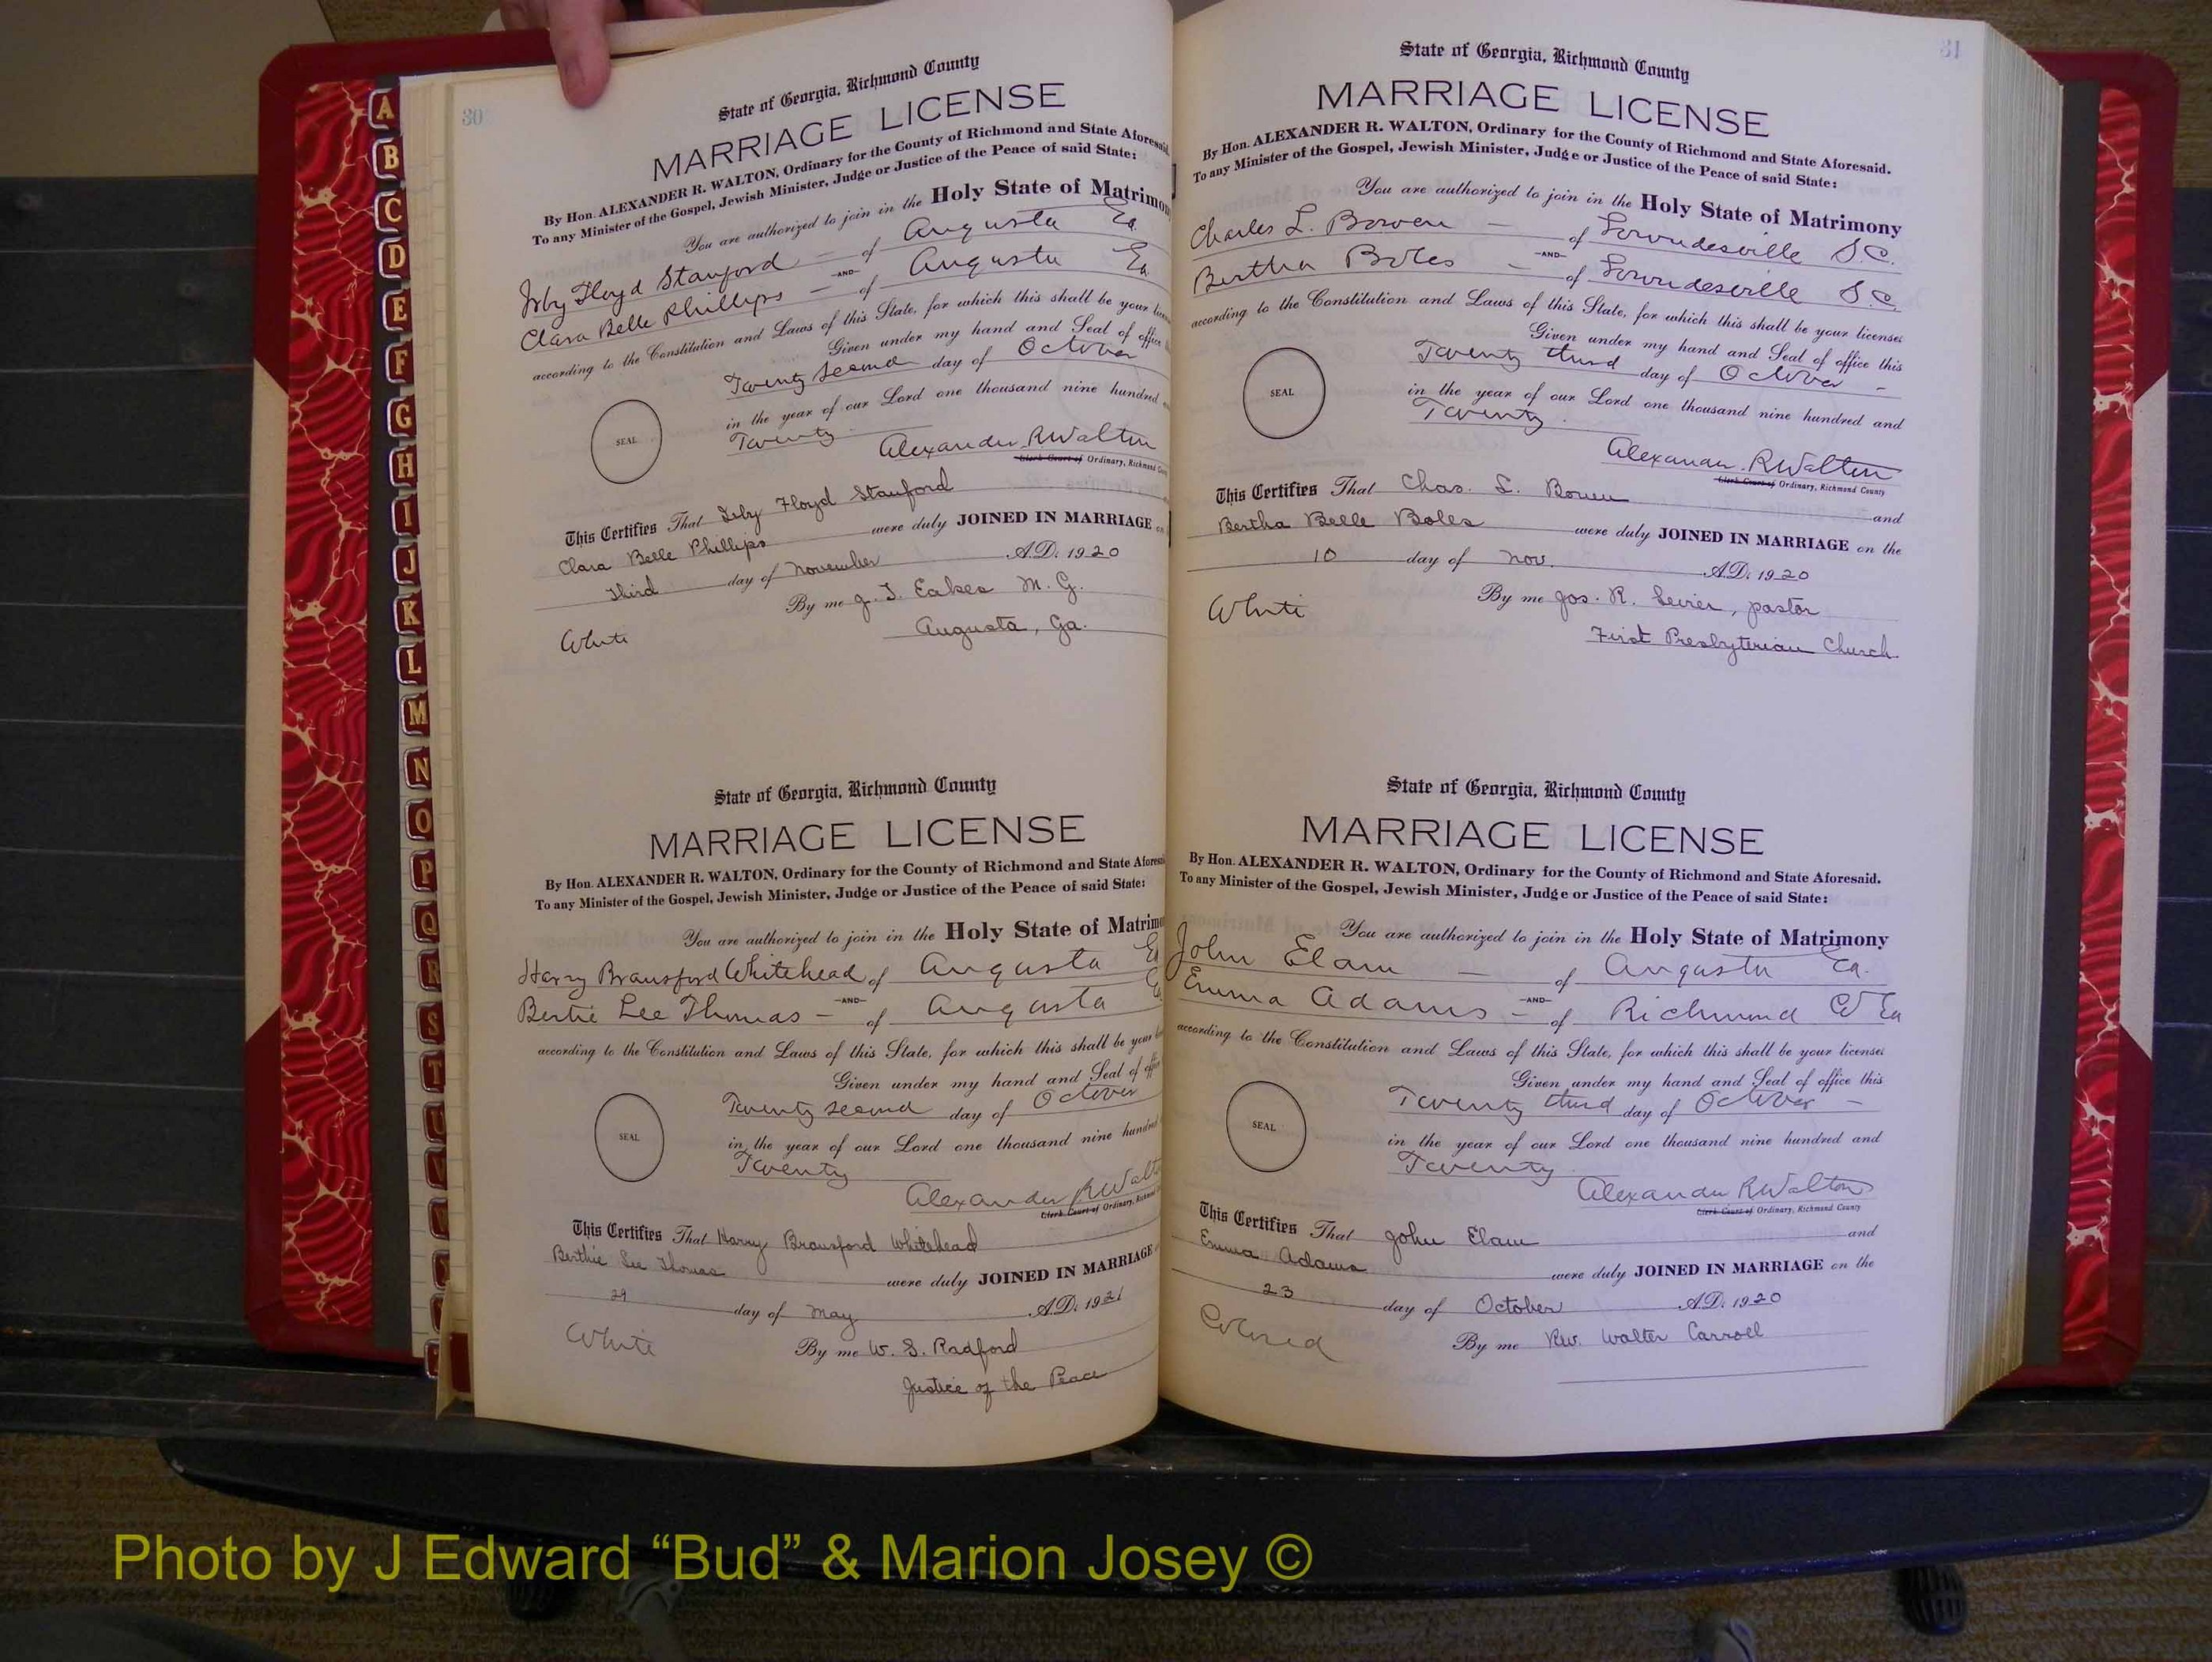 A
B
C
D
E
F
G
H
I
J
K
L
M
N
O
P
Q
R
S
T
U
V
30
State of Georgia, Richmond County
MARRIAGE LICENSE
By Hon. ALEXANDER R. WALTON, Ordinary for the County of Richmond and State Aforesaid.
To any Minister of the Gospel, Jewish Minister, Judge or Justice of the Peace of said State:
You are authorized to join in the Holy State of Matrimon
Irby Floyd Stanford — of Augusta Ga
—AND—
Clara Belle Phillips — of Augusta Ga
according to the Constitution and Laws of this State, for which this shall be your
Given under my hand and Seal of office
Twenty second day of October
in the year of our Lord one thousand nine hundred
Twenty
SEAL
Alexander R Walton
Clerk Court of Ordinary, Richmond
This Certifies That Irby Floyd Stanford
Clara Belle Phillips were duly JOINED IN MARRIAGE on
Third day of November A.D. 1920
By me J. T. Eakes M. G.
White
Augusta, Ga.
State of Georgia, Richmond County
MARRIAGE LICENSE
By Hon. ALEXANDER R. WALTON, Ordinary for the County of Richmond and State Aforesai
To any Minister of the Gospel, Jewish Minister, Judge or Justice of the Peace of said State:
You are authorized to join in the Holy State of Matrimo
Harry Bransford Whitehead of Augusta Ga
—AND—
Bertie Lee Thomas — of Augusta Ga
according to the Constitution and Laws of this State, for which this shall be your
Given under my hand and Seal of office
Twenty second day of October
in the year of our Lord one thousand nine hundred
Twenty
SEAL
Alexander R Walt
Clerk Court of Ordinary, Richmond
This Certifies That Harry Bransford Whitehead
Berthie Lee Thomas were duly JOINED IN MARRIAGE
29 day of May A.D. 1921
White
By me W. S. Radford
Justice of the Peace
31
State of Georgia, Richmond County
MARRIAGE LICENSE
By Hon. ALEXANDER R. WALTON, Ordinary for the County of Richmond and State Aforesaid.
To any Minister of the Gospel, Jewish Minister, Judge or Justice of the Peace of said State:
You are authorized to join in the Holy State of Matrimony
Charles L. Bowen — of Lowndesville S.C.
—AND—
Bertha Boles — of Lowndesville S.C.
according to the Constitution and Laws of this State, for which this shall be your license:
Given under my hand and Seal of office this
Twenty third day of October —
in the year of our Lord one thousand nine hundred and
Twenty
SEAL
Alexander R Walton
Clerk Court of Ordinary, Richmond County
This Certifies That Chas. L. Bowen and
Bertha Belle Boles were duly JOINED IN MARRIAGE on the
10 day of Nov. A.D. 1920
White
By me Jos. R. Sevier, pastor
First Presbyterian Church
State of Georgia, Richmond County
MARRIAGE LICENSE
By Hon. ALEXANDER R. WALTON, Ordinary for the County of Richmond and State Aforesaid.
To any Minister of the Gospel, Jewish Minister, Judge or Justice of the Peace of said State:
You are authorized to join in the Holy State of Matrimony
John Elam — of Augusta Ga.
—AND—
Emma Adams — of Richmond Co Ga
according to the Constitution and Laws of this State, for which this shall be your license:
Given under my hand and Seal of office this
Twenty third day of October —
in the year of our Lord one thousand nine hundred and
Twenty
SEAL
Alexander R Walton
Clerk Court of Ordinary, Richmond County
This Certifies That John Elam and
Emma Adams were duly JOINED IN MARRIAGE on the
23 day of October A.D. 1920
Colored
By me Rev. Walter Carroll
Photo by J Edward “Bud” & Marion Josey ©